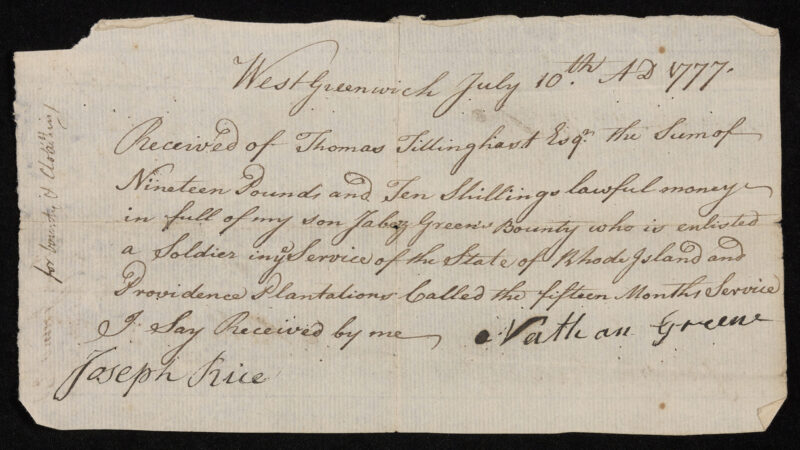 West Greenwich July 10.th AD 1777.
Received of Thomas Tillinghast Esqr. the Sum of
Nineteen Pounds and Ten Shillings lawful money
in full of my son Jabez Green's Bounty who is enlisted
a Soldier in ye Service of the State of Rhode Island and
Providence Plantations Called the fifteen Months Service
I Say Received by me Nathan Greene
Joseph Rice
for bounty & Clothing